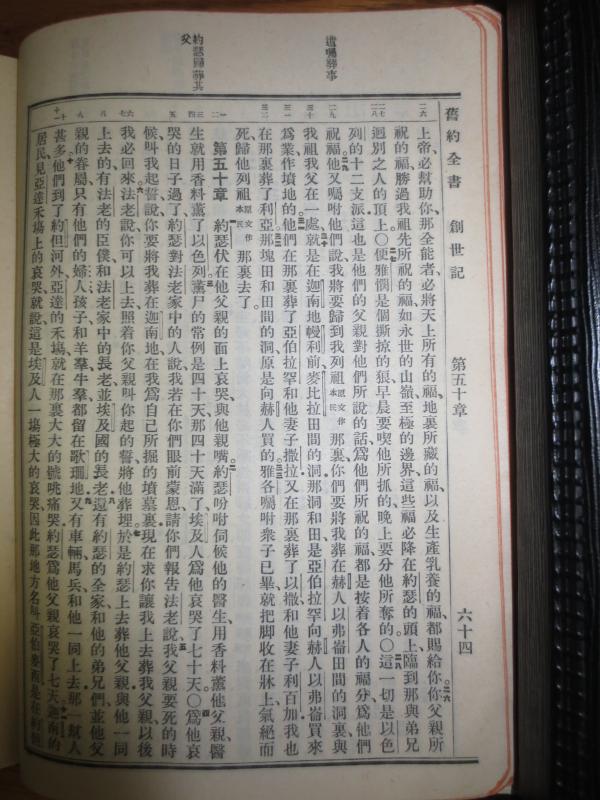 遺囑葬事
約瑟歸葬其
父
舊約全書 創世記 第五十章 六十四
上帝必幫助你那全能者必將天上所有的福地裏所藏的福以及生產乳養的福都賜給你你父親所
祝的福勝過我祖先所祝的福如永世的山嶺至極的邊界這些福必降在約瑟的頭上臨到那與弟兄
迥別之人的頂上〇便雅憫是個撕掠的狼早晨要喫他所抓的晚上要分他所奪的〇這一切是以色
列的十二支派這也是他們的父親對他們所說的話爲他們所祝的福都是按着各人的福分爲他們
祝福他又囑咐他們說我將要歸到我列祖原文作本民那裏你們要將我葬在赫人以弗崙田間的洞裏與
我祖我父在一處就是在迦南地幔利前麥比拉田間的洞那洞和田是亞伯拉罕向赫人以弗崙買來
爲業作墳地的他們在那裏葬了亞伯拉罕和他妻子撒拉又在那裏葬了以撒和他妻子利百加我也
在那裏葬了利亞那塊田和田間的洞原是向赫人買的雅各囑咐衆子已畢就把脚收在牀上氣絕而
死歸他列祖原文作本民那裏去了
第五十章 約瑟伏在他父親的面上哀哭與他親嘴約瑟吩咐伺候他的醫生用香料薰他父親醫
生就用香料薰了以色列薰尸的常例是四十天那四十天滿了埃及人爲他哀哭了七十天〇爲他哀
哭的日子過了約瑟對法老家中的人說我若在你們眼前蒙恩請你們報告法老說我父親要死的時
候叫我起誓說你要將我葬在迦南地在我爲自己所掘的墳墓裏現在求你讓我上去葬我父親以後
我必回來法老說你可以上去照着你父親叫你起的誓將他葬埋於是約瑟上去葬他父親與他一同
上去的有法老的臣僕和法老家中的長老並埃及國的長老還有約瑟的全家和他的弟兄們並他父
親的眷屬只有他們的婦人孩子和羊羣牛羣都留在歌珊地又有車輛馬兵和他一同上去那一幫人
甚多他們到了約但河外亞達的禾塲就在那裏大大的號咷痛哭約瑟爲他父親哀哭了七天迦南的
居民見亞達禾塲上的哀哭就說這是埃及人一塲極大的哀哭因此那地方名叫亞伯麥西是在約但